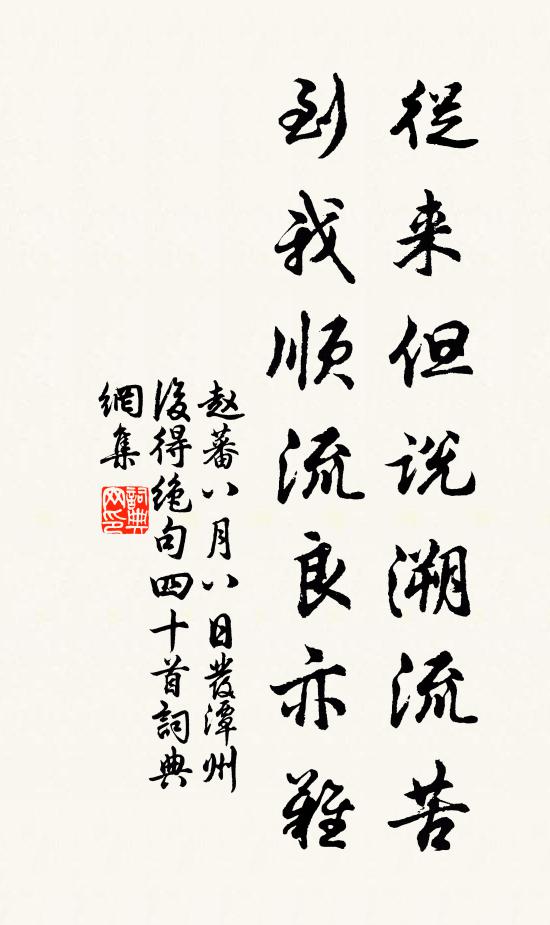 從来但说溯流苦
到我順流良亦難
赵蕃八月八日發潭州
後得绝句四十首詞典
網集
詞典
网印